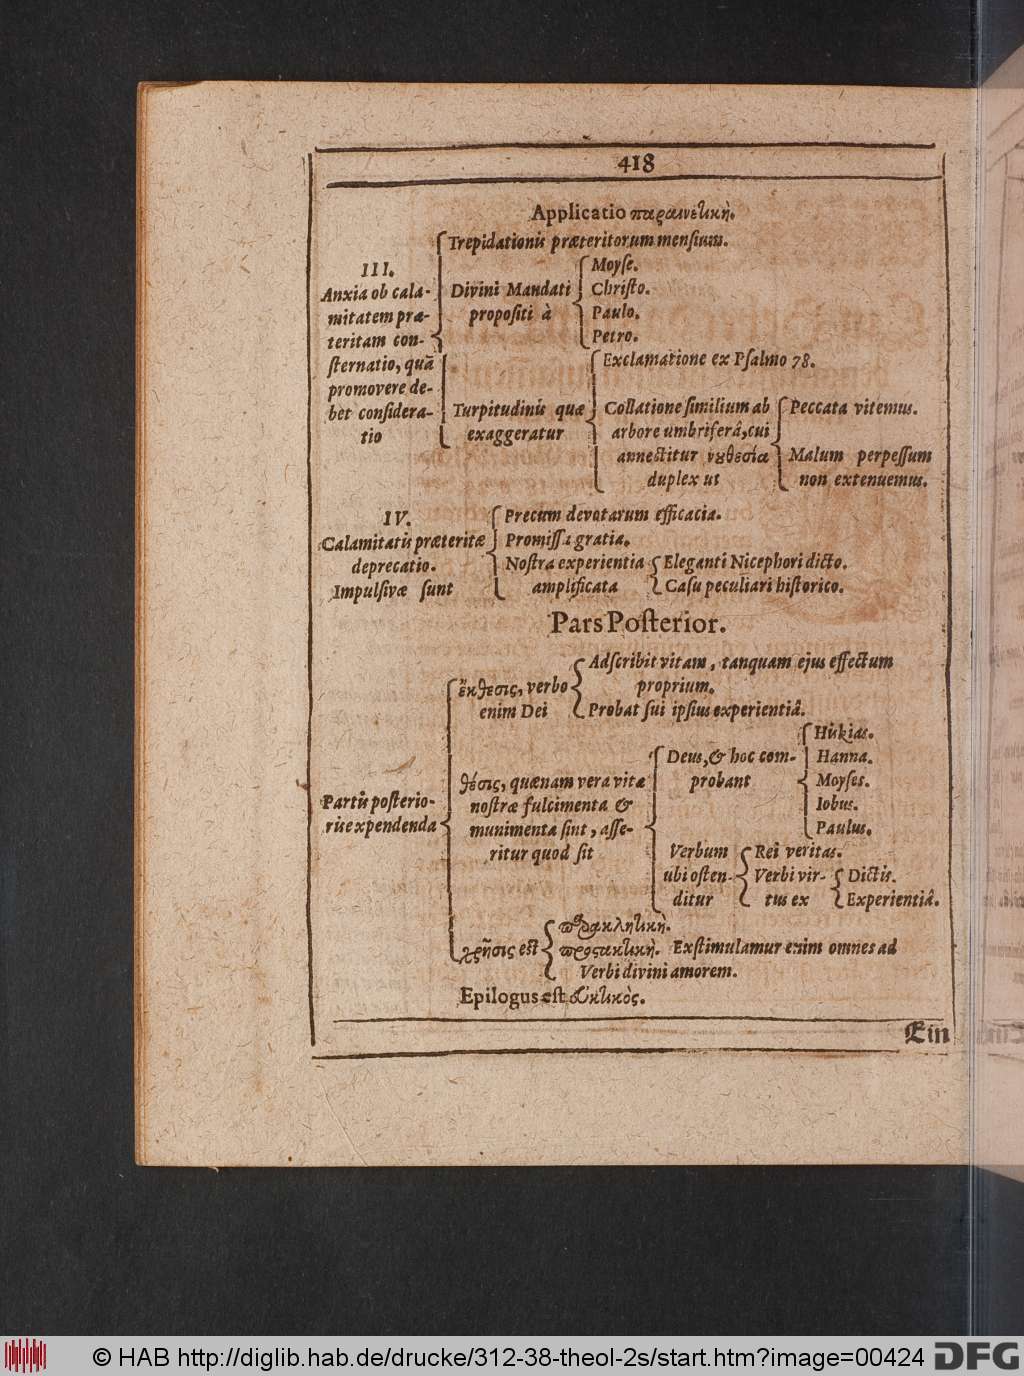 418
Applicatio παραινετικὴ.
III.
Anxia ob cala-
mitatem præ-
teritam con-
ſternatio, quã
promovere de-
bet conſidera-
tio
Trepidationis præteritorum menſium.
Divini Mandati
propoſiti à
Moyſe.
Chriſto.
Paulo.
Petro.
Turpitudinis quæ
exaggeratur
Exclamatione ex Pſalmo 78.
Collatione ſimilium ab
arbore umbriferâ, cui
annectitur νȣθεσία
duplex ut
Peccata vitemus.
Malum perpeſſum
non extenuemus.
IV.
Calamitatis præteritæ
deprecatio.
Impulſivæ ſunt
Precum devotarum efficacia.
Promiſſa gratia.
Noſtra experientia
amplificata
Eleganti Nicephori dicto.
Caſu peculiari hiſtorico.
Pars Poſterior.
Partis poſterio-
ris expendenda
ἔκθεσις, verbo
enim Dei
Adſcribit vitam, tanquam ejus effectum
proprium.
Probat ſui ipſius experientiâ.
θέσις, quænam vera vitæ
noſtræ fulcimenta &
munimenta ſint, aſſe-
ritur quod ſit
Deus, & hoc com-
probant
Hiskias.
Hanna.
Moyſes.
Iobus.
Paulus.
Verbum
ubi oſten-
ditur
Rei veritas.
Verbi vir-
tus ex
Dictis.
Experientiâ.
χρῆσις eſt
παρακλητικὴ.
προςακτικὴ. Exſtimulamur enim omnes ad
Verbi divini amorem.
Epilogus eſt εὐκτικὸς.
Ein
© HAB http://diglib.hab.de/drucke/312-38-theol-2s/start.htm?image=00424
DFG